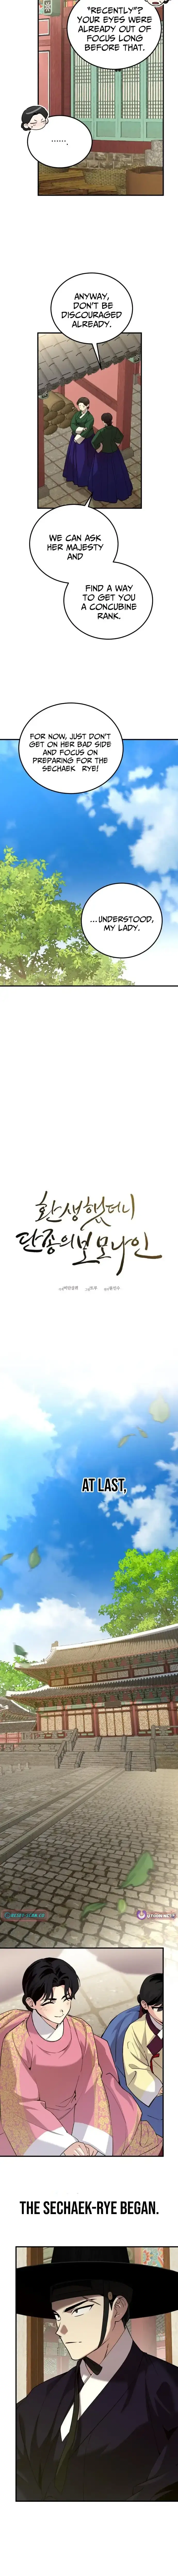 "RECENTLY"?
YOUR EYES WERE
ALREADY OUT OF
FOCUS LONG
BEFORE THAT.
.......
ANYWAY,
DON'T BE
DISCOURAGED
ALREADY.
WE CAN ASK
HER MAJESTY
AND
FIND A WAY
TO GET YOU
A CONCUBINE
RANK.
FOR NOW, JUST DON'T
GET ON HER BAD SIDE
AND FOCUS ON
PREPARING FOR THE
SECHAEK RYE!
...UNDERSTOOD,
MY LADY.
환생했더니
단종의 보모나인
AT LAST,
THE SECHAEK-RYE BEGAN.